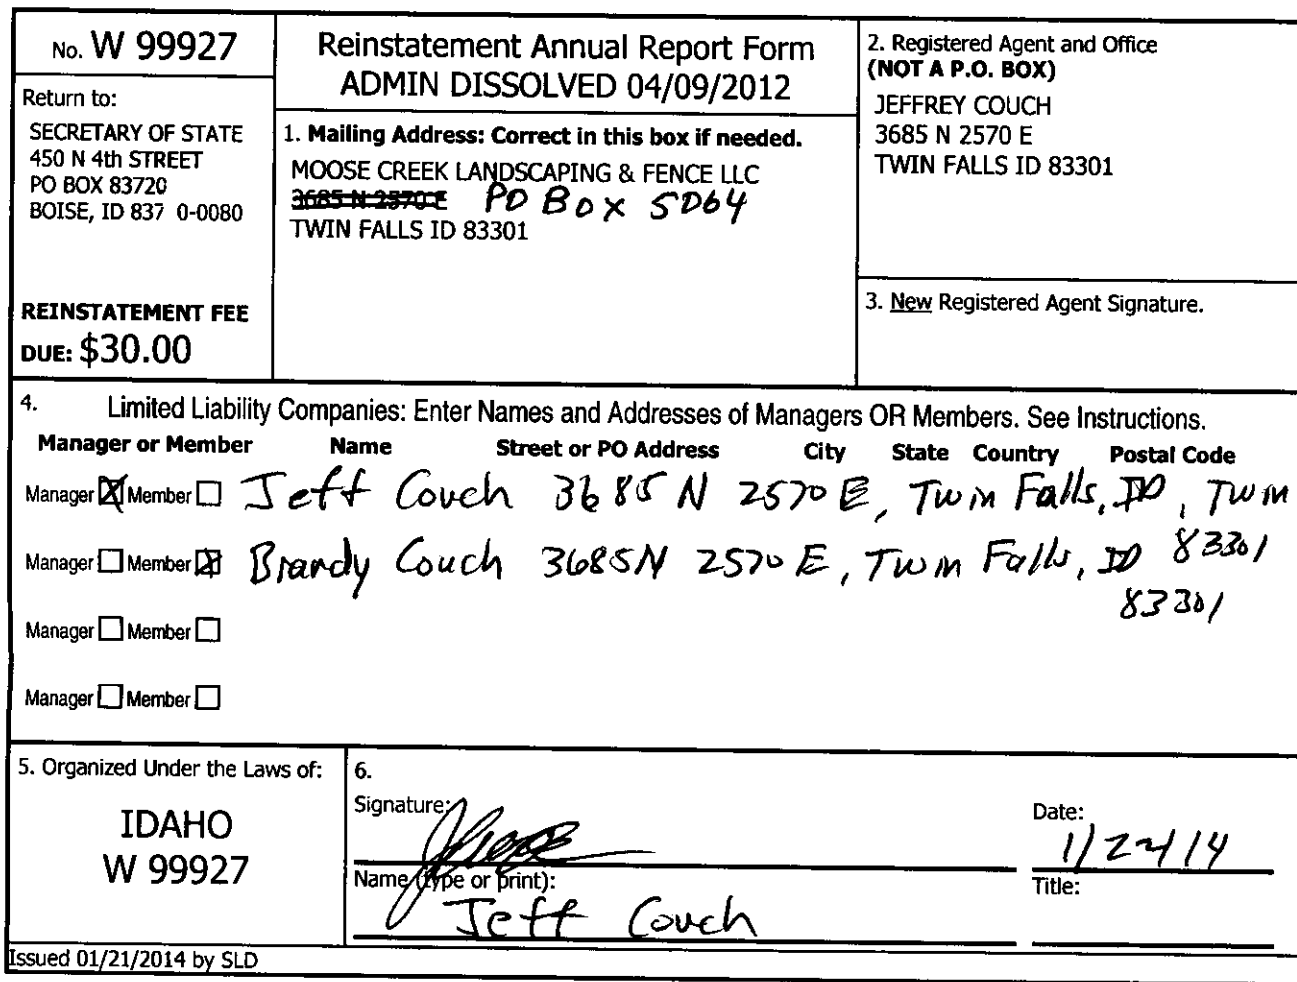 No. W 99927
Return to:
SECRETARY OF STATE
450 N 4th STREET
PO BOX 83720
BOISE, ID 837 0-0080
REINSTATEMENT FEE
DUE: $30.00
Reinstatement Annual Report Form
ADMIN DISSOLVED 04/09/2012
1. Mailing Address: Correct in this box if needed.
MOOSE CREEK LANDSCAPING & FENCE LLC
3685 N 2570 E PO Box 5064
TWIN FALLS ID 83301
2. Registered Agent and Office
(NOT A P.O. BOX)
JEFFREY COUCH
3685 N 2570 E
TWIN FALLS ID 83301
3. New Registered Agent Signature.
4. Limited Liability Companies: Enter Names and Addresses of Managers OR Members. See Instructions.
Manager or Member Name Street or PO Address City State Country Postal Code
Manager Member Jeff Couch 3685 N 2570 E, Twin Falls, ID, Twin
83301
Manager Member Brandy Couch 3685 N 2570 E, Twin Falls, ID
83301
Manager Member
Manager Member
5. Organized Under the Laws of:
IDAHO
W 99927
6.
Signature:
Date:
1/22/14
Name (type or print):
Jeff Couch
Title:
Issued 01/21/2014 by SLD